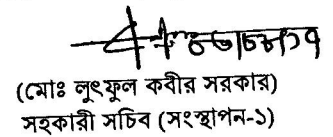 (মোঃ লুৎফুল কবীর সরকার)
সহকারী সচিব (সংস্থাপন-১)